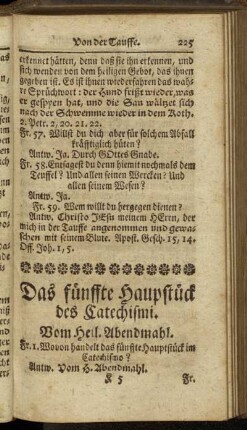 Von der Tauffe. 225
erkennet hätten, denn daß sie ihn erkennen, und
sich wenden von dem heiligen Gebot, das ihnen
gegeben ist. Es ist ihnen wiederfahren das wah-
re Sprüchwort: der Hund frißt wieder, was
er gespyen hat, und die Sau wältzet sich
nach der Schwemme wieder in dem Koth.
2. Petr. 2, 20. 21. 22.
Fr. 57. Willst du dich aber für solchem Abfall
kräfftiglich hüten?
Antw. Ja. Durch GOttes Gnade.
Fr. 58. Entsagest du denn hiemit nochmals dem
Teuffel? Und allen seinen Wercken? Und
allen seinem Wesen?
Antw. Ja.
Fr. 59. Wem willt du hergegen dienen?
Antw. Christo JEsu meinem HErrn, der
mich in der Tauffe angenommen und gewa-
schen mit seinem Blute. Apost. Gesch. 15, 14.
Off. Joh. 1, 5.
Das fünffte Hauptstück
des Catechismi.
Vom Heil. Abendmahl.
Fr. 1. Wovon handelt das fünffte Hauptstück im
Catechismo?
Antw. Vom H. Abendmahl.
K 5 Fr.